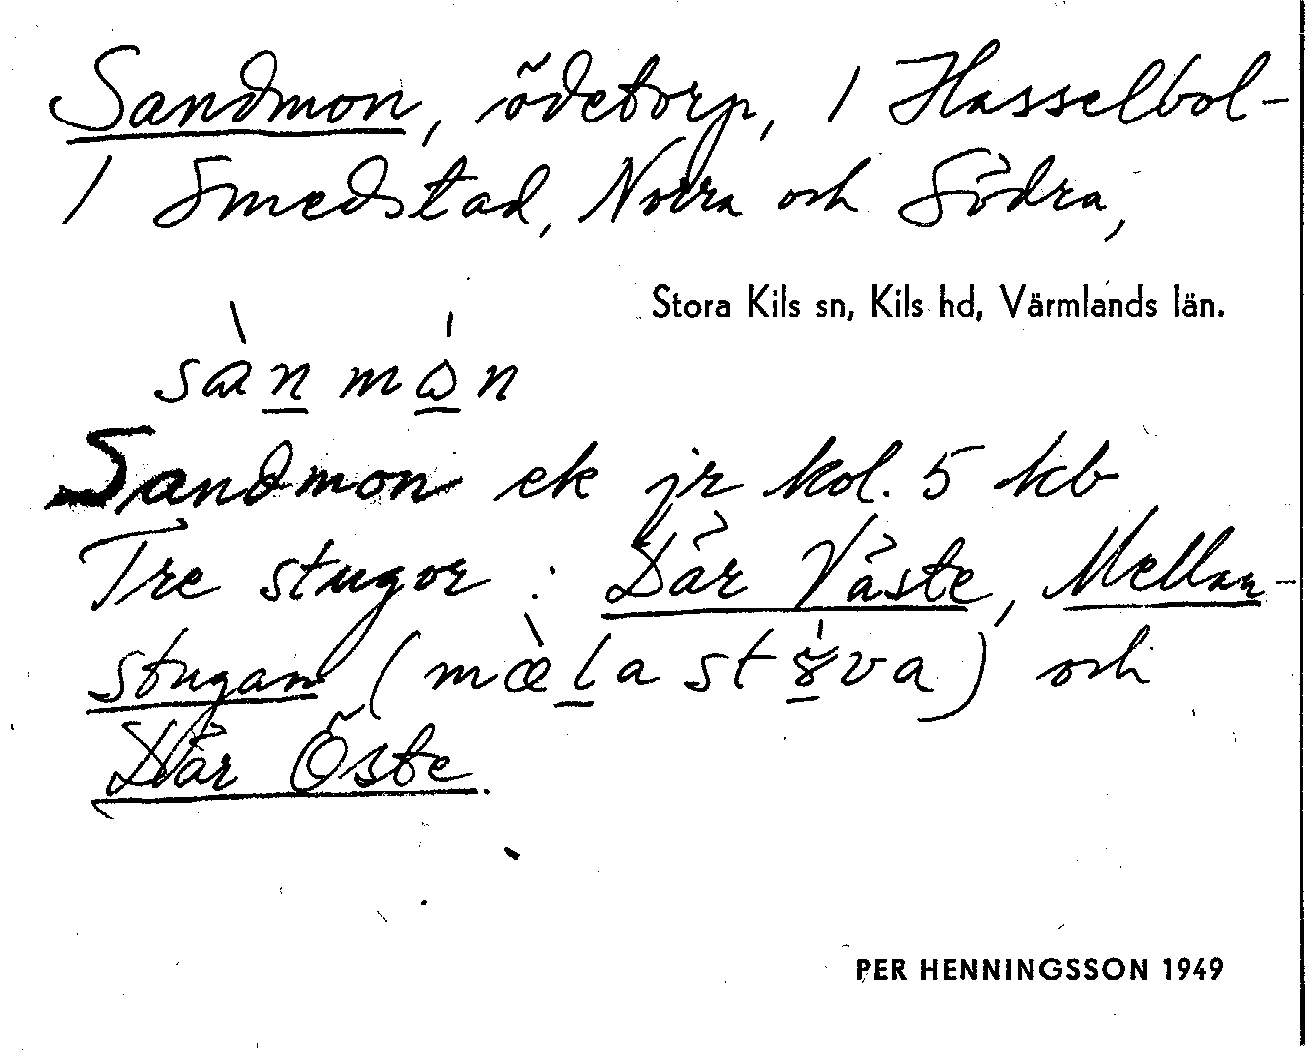 Sandmon, ödetorp, / Hasselbol-
/ Smedstad, Norra och Södra,
Stora Kils sn, Kils hd, Värmlands län.
sàn mɷ́n
Sandmon ek jr kol. 5 kb
Tre stugor: Där Väste, Mellan-
stugan (mæ̀la stɤ́va) och
Där Öste.
PER HENNINGSSON 1949